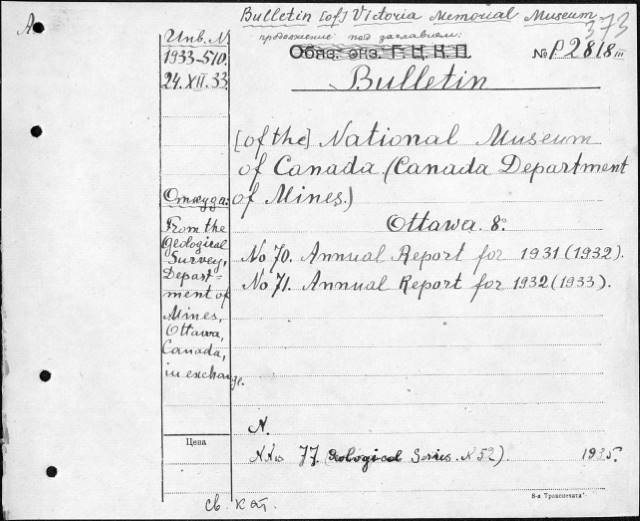 Bulletin [of] Victoria Memorial Museum
продолжение под заглавием:
373
A
Инв. №
1933-510.
24.XII.33.
Обяз. экз. Г.Ц.К.П.
№ P2818 III
Bulletin
[of the] National Museum
of Canada (Canada Department
of Mines.)
Откуда:
From the
Geological
Survey,
Depart=
ment of
Mines,
Ottawa,
Canada,
in exchange.
Ottawa. 8º.
No 70. Annual Report for 1931 (1932).
No 71. Annual Report for 1932 (1933).
N.
Цена
77. (Geological Series. N 52). 1935.
св. кат.
8-я Транспечать